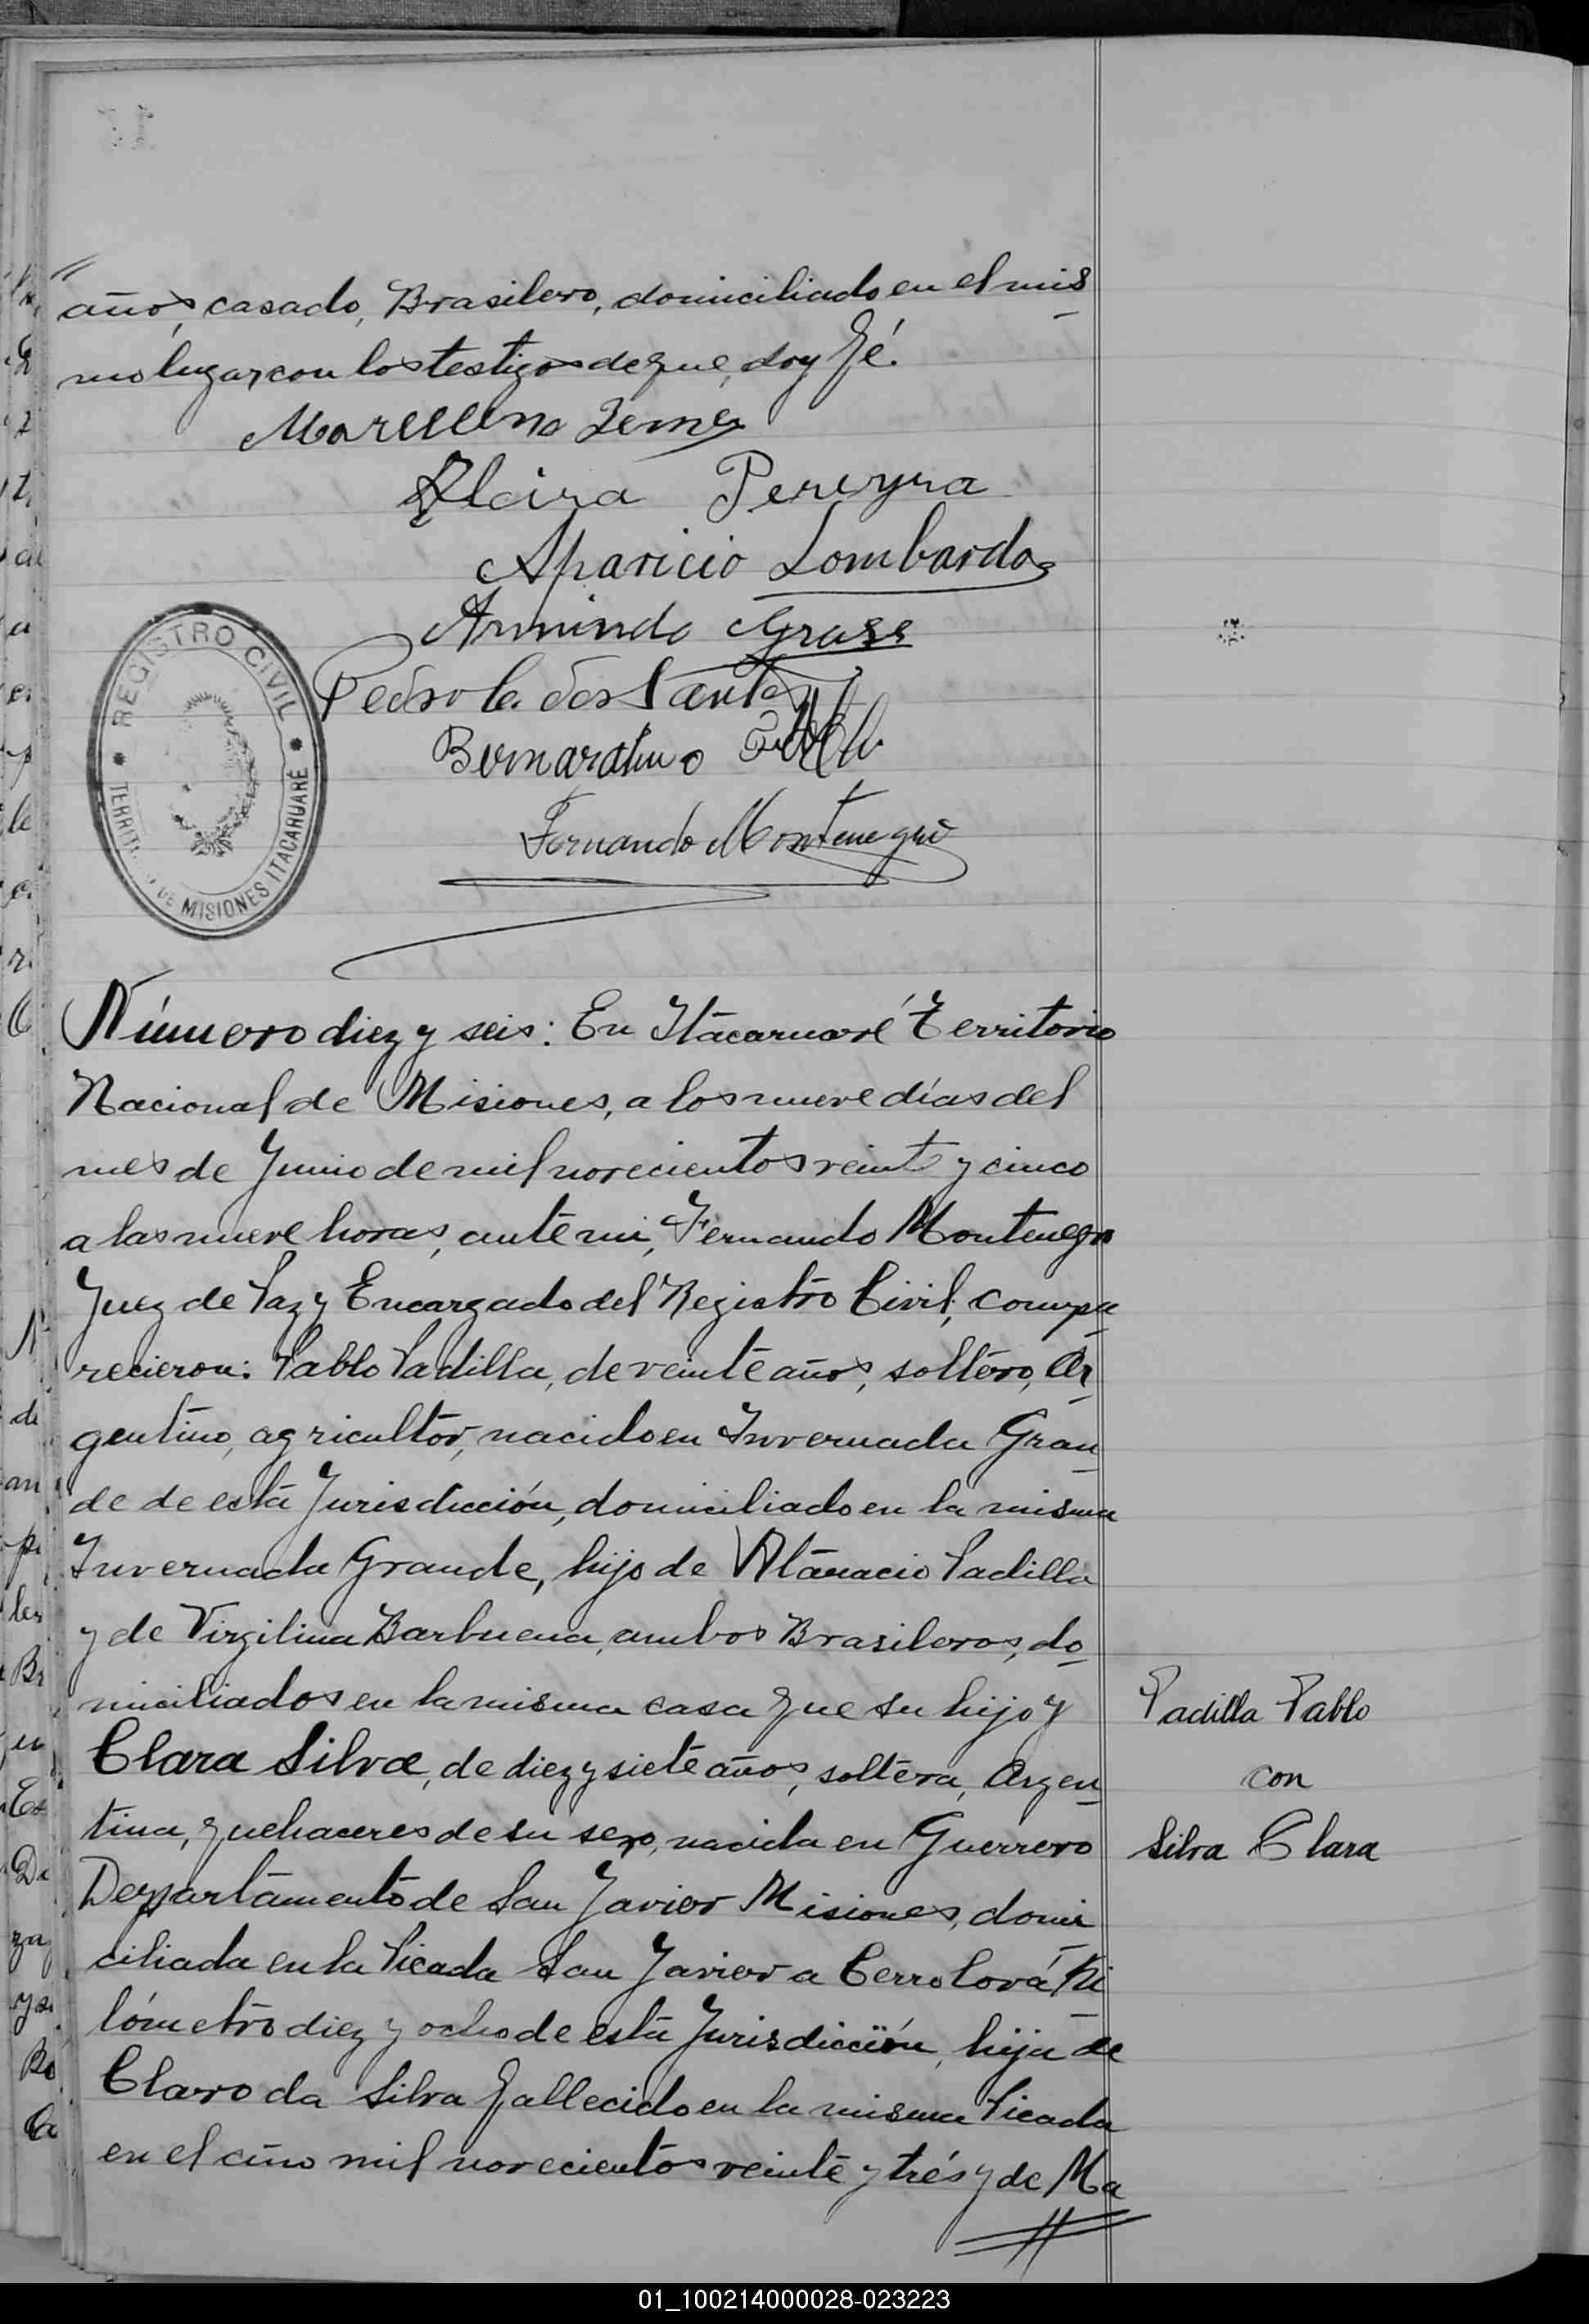 años, casado, Brasilero, domiciliado en el mis
mo lugar, con los testigos de que, doy fé.
Marcelino Leme
Alcira Pereyra
Aparicio Lombardo
Armindo
Pedro C. dos Santos
Bernardino
Fernando Montenegro
REGISTRO CIVIL
DE MISIONES ITACARUARÉ
Número diez y seis: En Itacaruaré Territorio
Nacional de Misiones, a los nueve días del
mes de Junio de mil novecientos veinte y cinco
a las nueve horas, ante mi, Fernando Montenegro
Juez de Paz y Encargado del Registro Civil, compa
recieron: Pablo Padilla, de veinte años, soltero, Ar
gentino, agricultor, nacido en Invernada Gran
de de esta Jurisdicción, domiciliado en la misma
Invernada Grande, hijo de Atanacio Padilla
y de Virgilina Barbuena, ambos Brasileros, do
miciliados en la misma casa que su hijo y
Clara Silva, de diez y siete años, soltera, Argen
tina, quehaceres de su sexo, nacida en Guerrero
Departamento de San Javier Misiones, domi
ciliada en la Picada San Javier a Cerro Corá Ki
lómetro diez y ocho de esta Jurisdicción, hija de
Claro da Silva fallecido en la misma Picada
en el año mil novecientos veinte y trés y de Ma
Padilla Pablo
con
Silva Clara
01_100214000028-023223